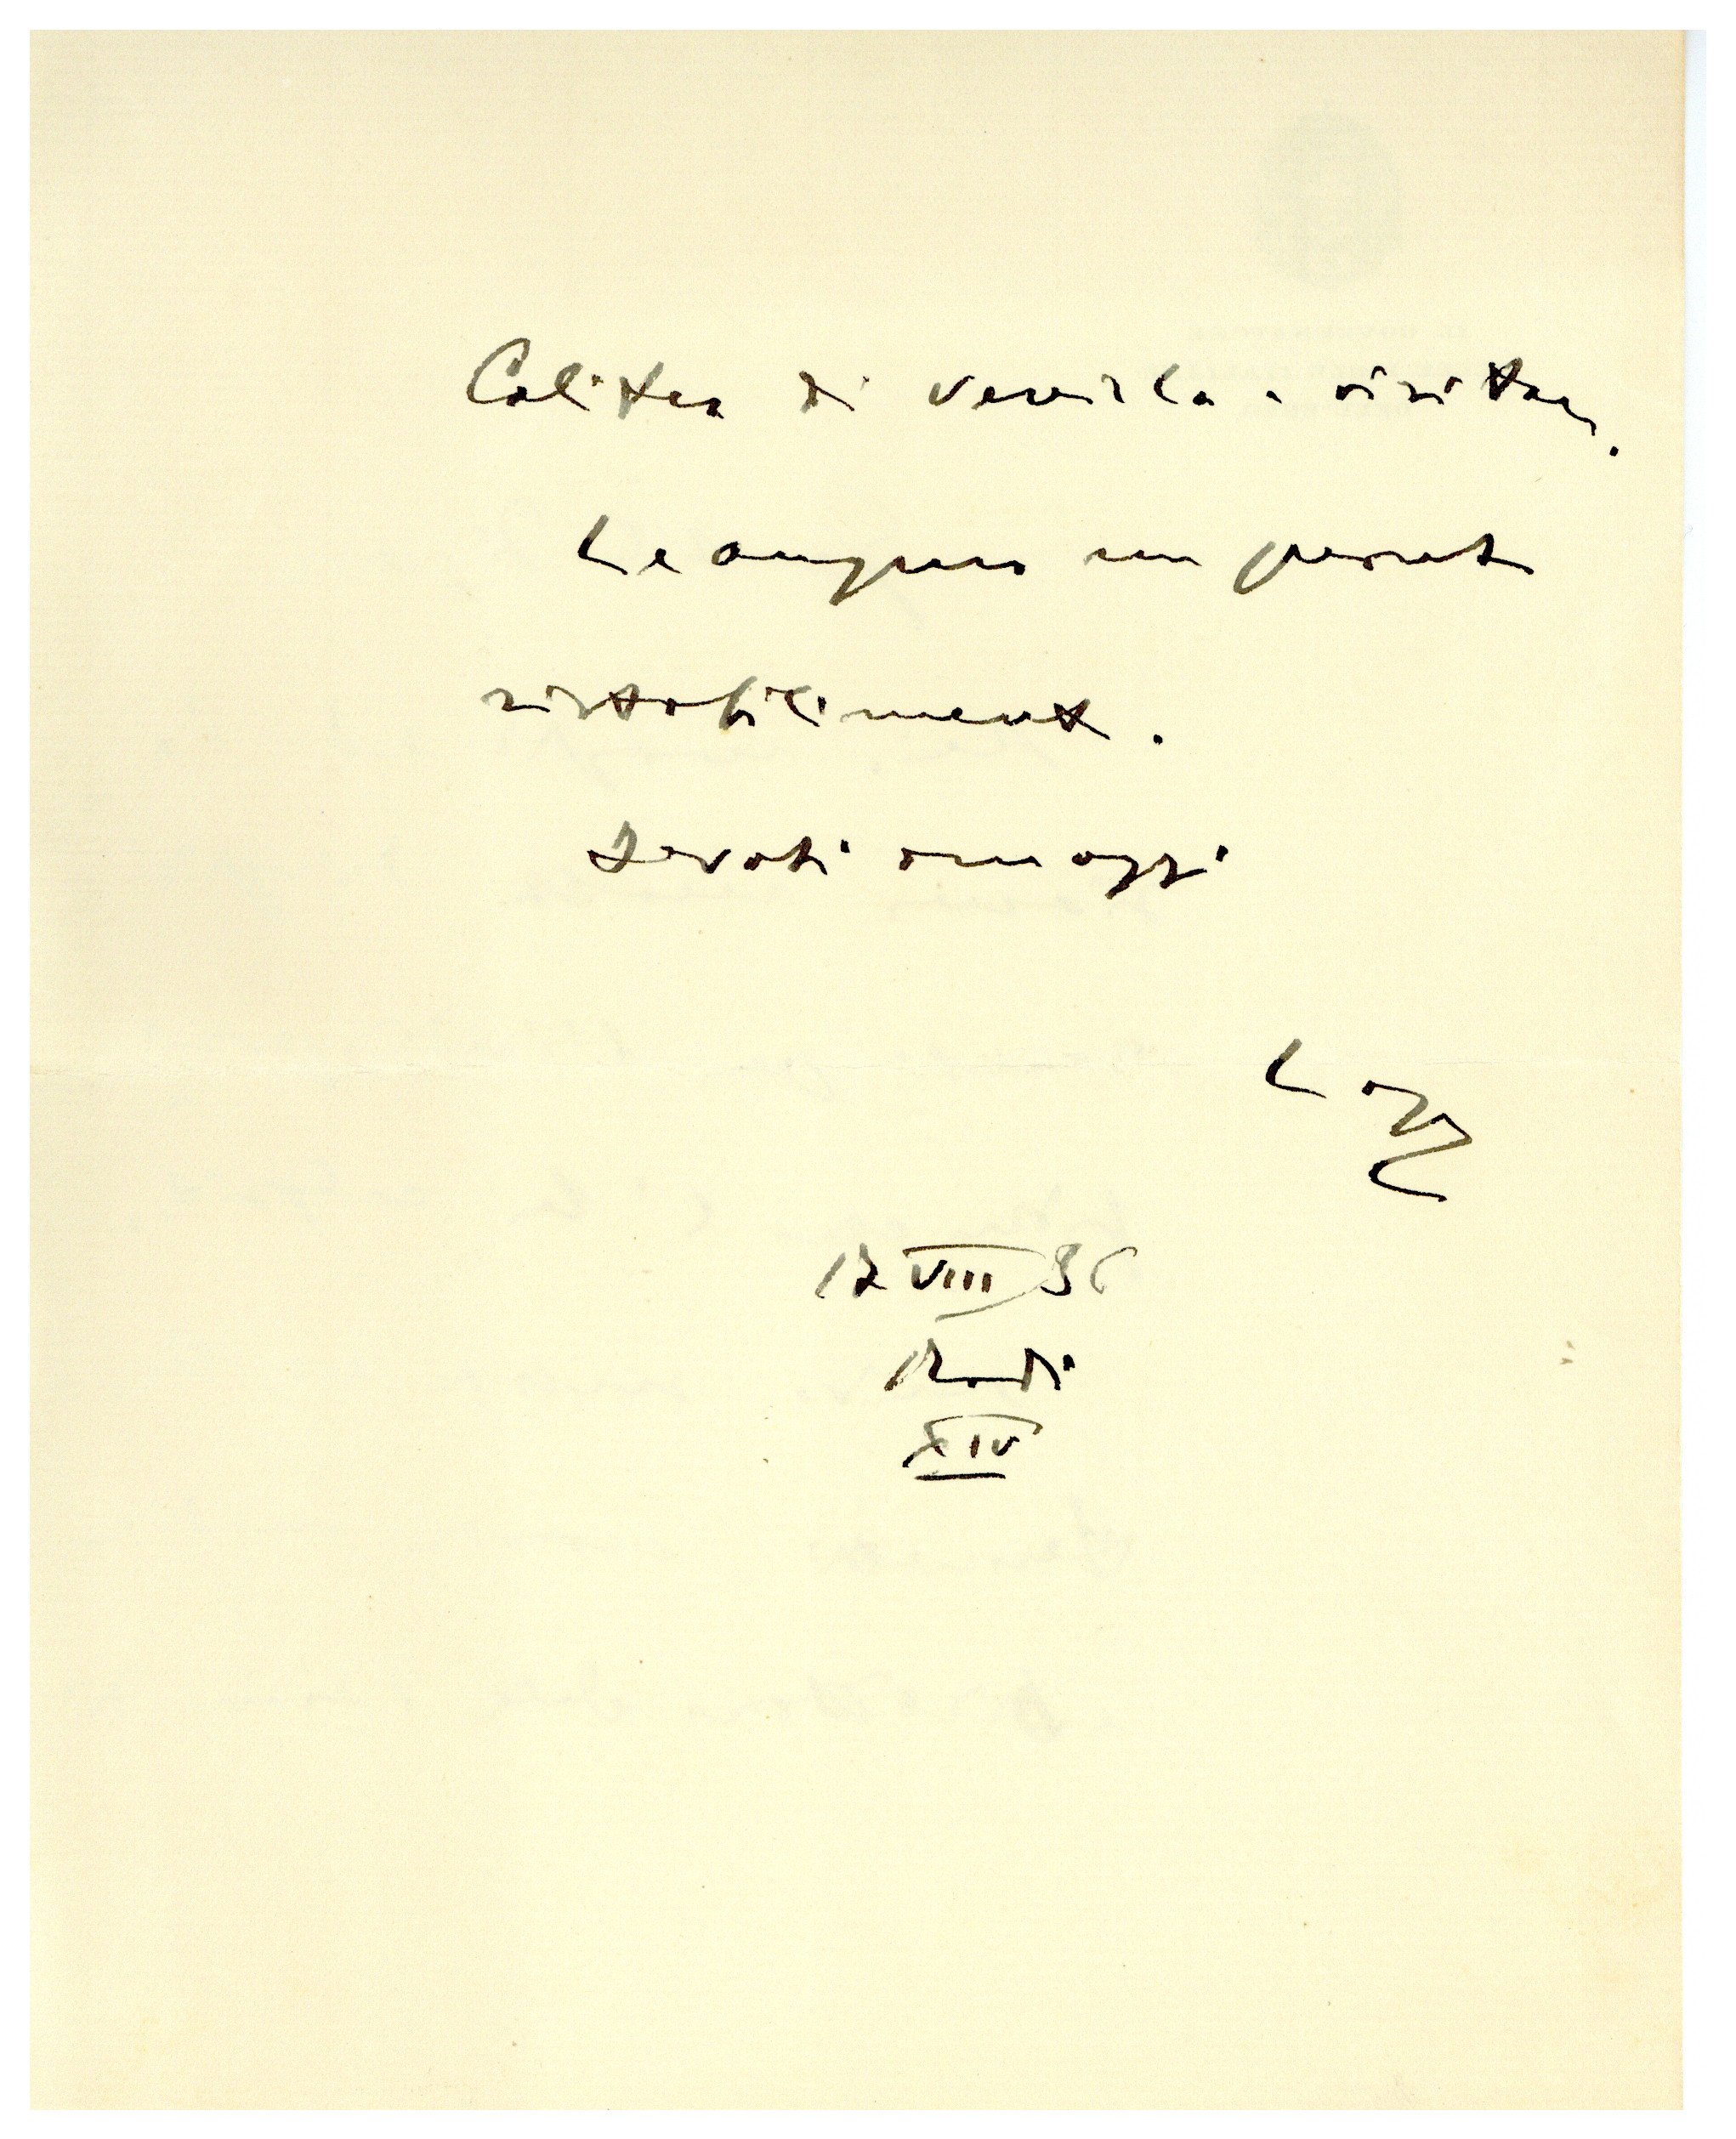 Calitea di venirla a visitare.
Le auguro un pronto
ristabilimento.
Devoti omaggi
Lago
12 VIII 36
Rodi
XIV